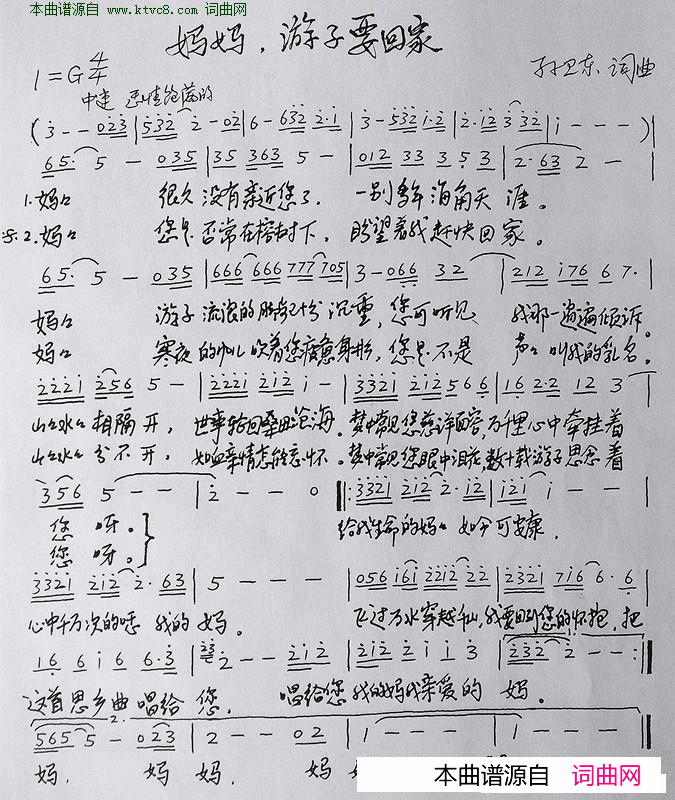 本曲谱源自
www.ktvc8.com 词曲网
妈妈，游子要回家
1=G 4/4
孙卫东 词曲
中速
(3 - - 0 2 3 | 5 3 2 2 - 0 2 | 6 - 6 3 2 2 · 1 | 3 - 5 3 2 1 · 2 | 2 · 1 2 3 3 2 | 1 - - - )|
6 5 · 5 - 0 3 5 | 3 5 3 6 3 5 - | 0 1 2 3 3 3 · 5 3 | 2 · 6 3 2 - |
1.妈妈 很久没有亲近您了. 一别多年海角天涯。
2.妈妈 您是否常在榕树下, 盼望着我赶快回家。
6 5 · 5 - 0 3 5 | 6 6 6 6 6 6 7 7 7 7 0 5 | 3 - 0 6 6 3 2 | 2 1 2 1 7 6 6 7 · |
妈妈 游子流浪的 沉重, 您可听见 我那一遍遍倾诉。
妈妈 寒夜的 吹着您疲惫身形, 您是不是 声声叫我的乳名。
2 2 2 1 2 5 6 5 - | 2 2 2 1 2 1 2 1 - | 3 3 2 1 2 1 2 5 6 6 | 1 6 2 · 2 1 2 3 |
山山水水相隔开, 世事轮回桑田沧海. 梦中常见您慈详面容, 万千里心中牵挂着
山山水水分不开, 如血亲情怎能忘怀. 梦中常见您眼中泪花, 数十载游子思念着
3 5 6 5 - - | 2 - - 0 |: 3 3 2 1 2 1 2 2 · 1 2 | 1 2 1 1 - - |
您呀。 给我生命的妈妈 如今可安康.
您呀。
3 3 2 1 2 1 2 2 · 6 3 | 5 - - - | 0 5 6 1 6 1 2 2 1 2 2 2 | 2 3 2 1 7 1 6 6 · 6 |
心中千万次的呼 我的妈。 飞过万水穿越千山, 我要回到您的怀抱, 把
1 6 6 1 6 6 · 3 | 2 3 2 - - 2 1 2 | 2 1 2 2 1 1 3 | 2 3 2 2 - - :|
这首思乡曲唱给您. 唱给您我的妈我亲爱的妈。
2.
5 6 5 5 - 0 2 3 | 2 - - 0 2 | 1 - - - | 1 - - - ‖
妈. 妈妈. 妈
本曲谱源自 词曲网